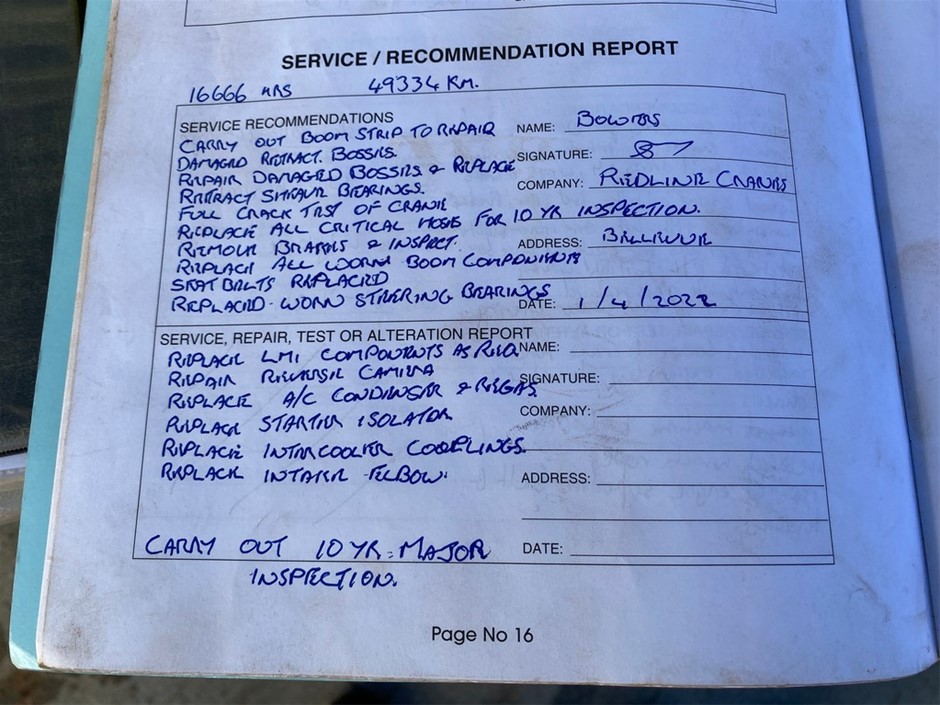 SERVICE / RECOMMENDATION REPORT
16666 HRS 49334 KM.
SERVICE RECOMMENDATIONS
CARRY OUT BOOM STRIP TO REPAIR
DAMAGED RETRACT BOSSES.
REPAIR DAMAGED BOSSES & REPLACE
RETRACT SHEAVE BEARINGS.
FULL CRACK TEST OF CRANE
REPLACE ALL CRITICAL HOSES FOR 10 YR INSPECTION.
REMOVE BRAKES & INSPECT.
REPLACE ALL WORN BOOM COMPONENTS
SEAT BELTS REPLACED
REPLACED WORN STEERING BEARINGS
NAME:
SIGNATURE:
COMPANY: REDLINE CRANES
ADDRESS:
DATE: 1/4/2022
SERVICE, REPAIR, TEST OR ALTERATION REPORT
REPLACE LMI COMPONENTS AS REQ.
REPAIR REVERSE CAMERA
REPLACE A/C CONDENSER & REGAS.
REPLACE STARTER ISOLATOR
REPLACE INTERCOOLER COUPLINGS.
REPLACE INTAKE ELBOW.
CARRY OUT 10 YR MAJOR
INSPECTION.
NAME:
SIGNATURE:
COMPANY:
ADDRESS:
DATE:
Page No 16